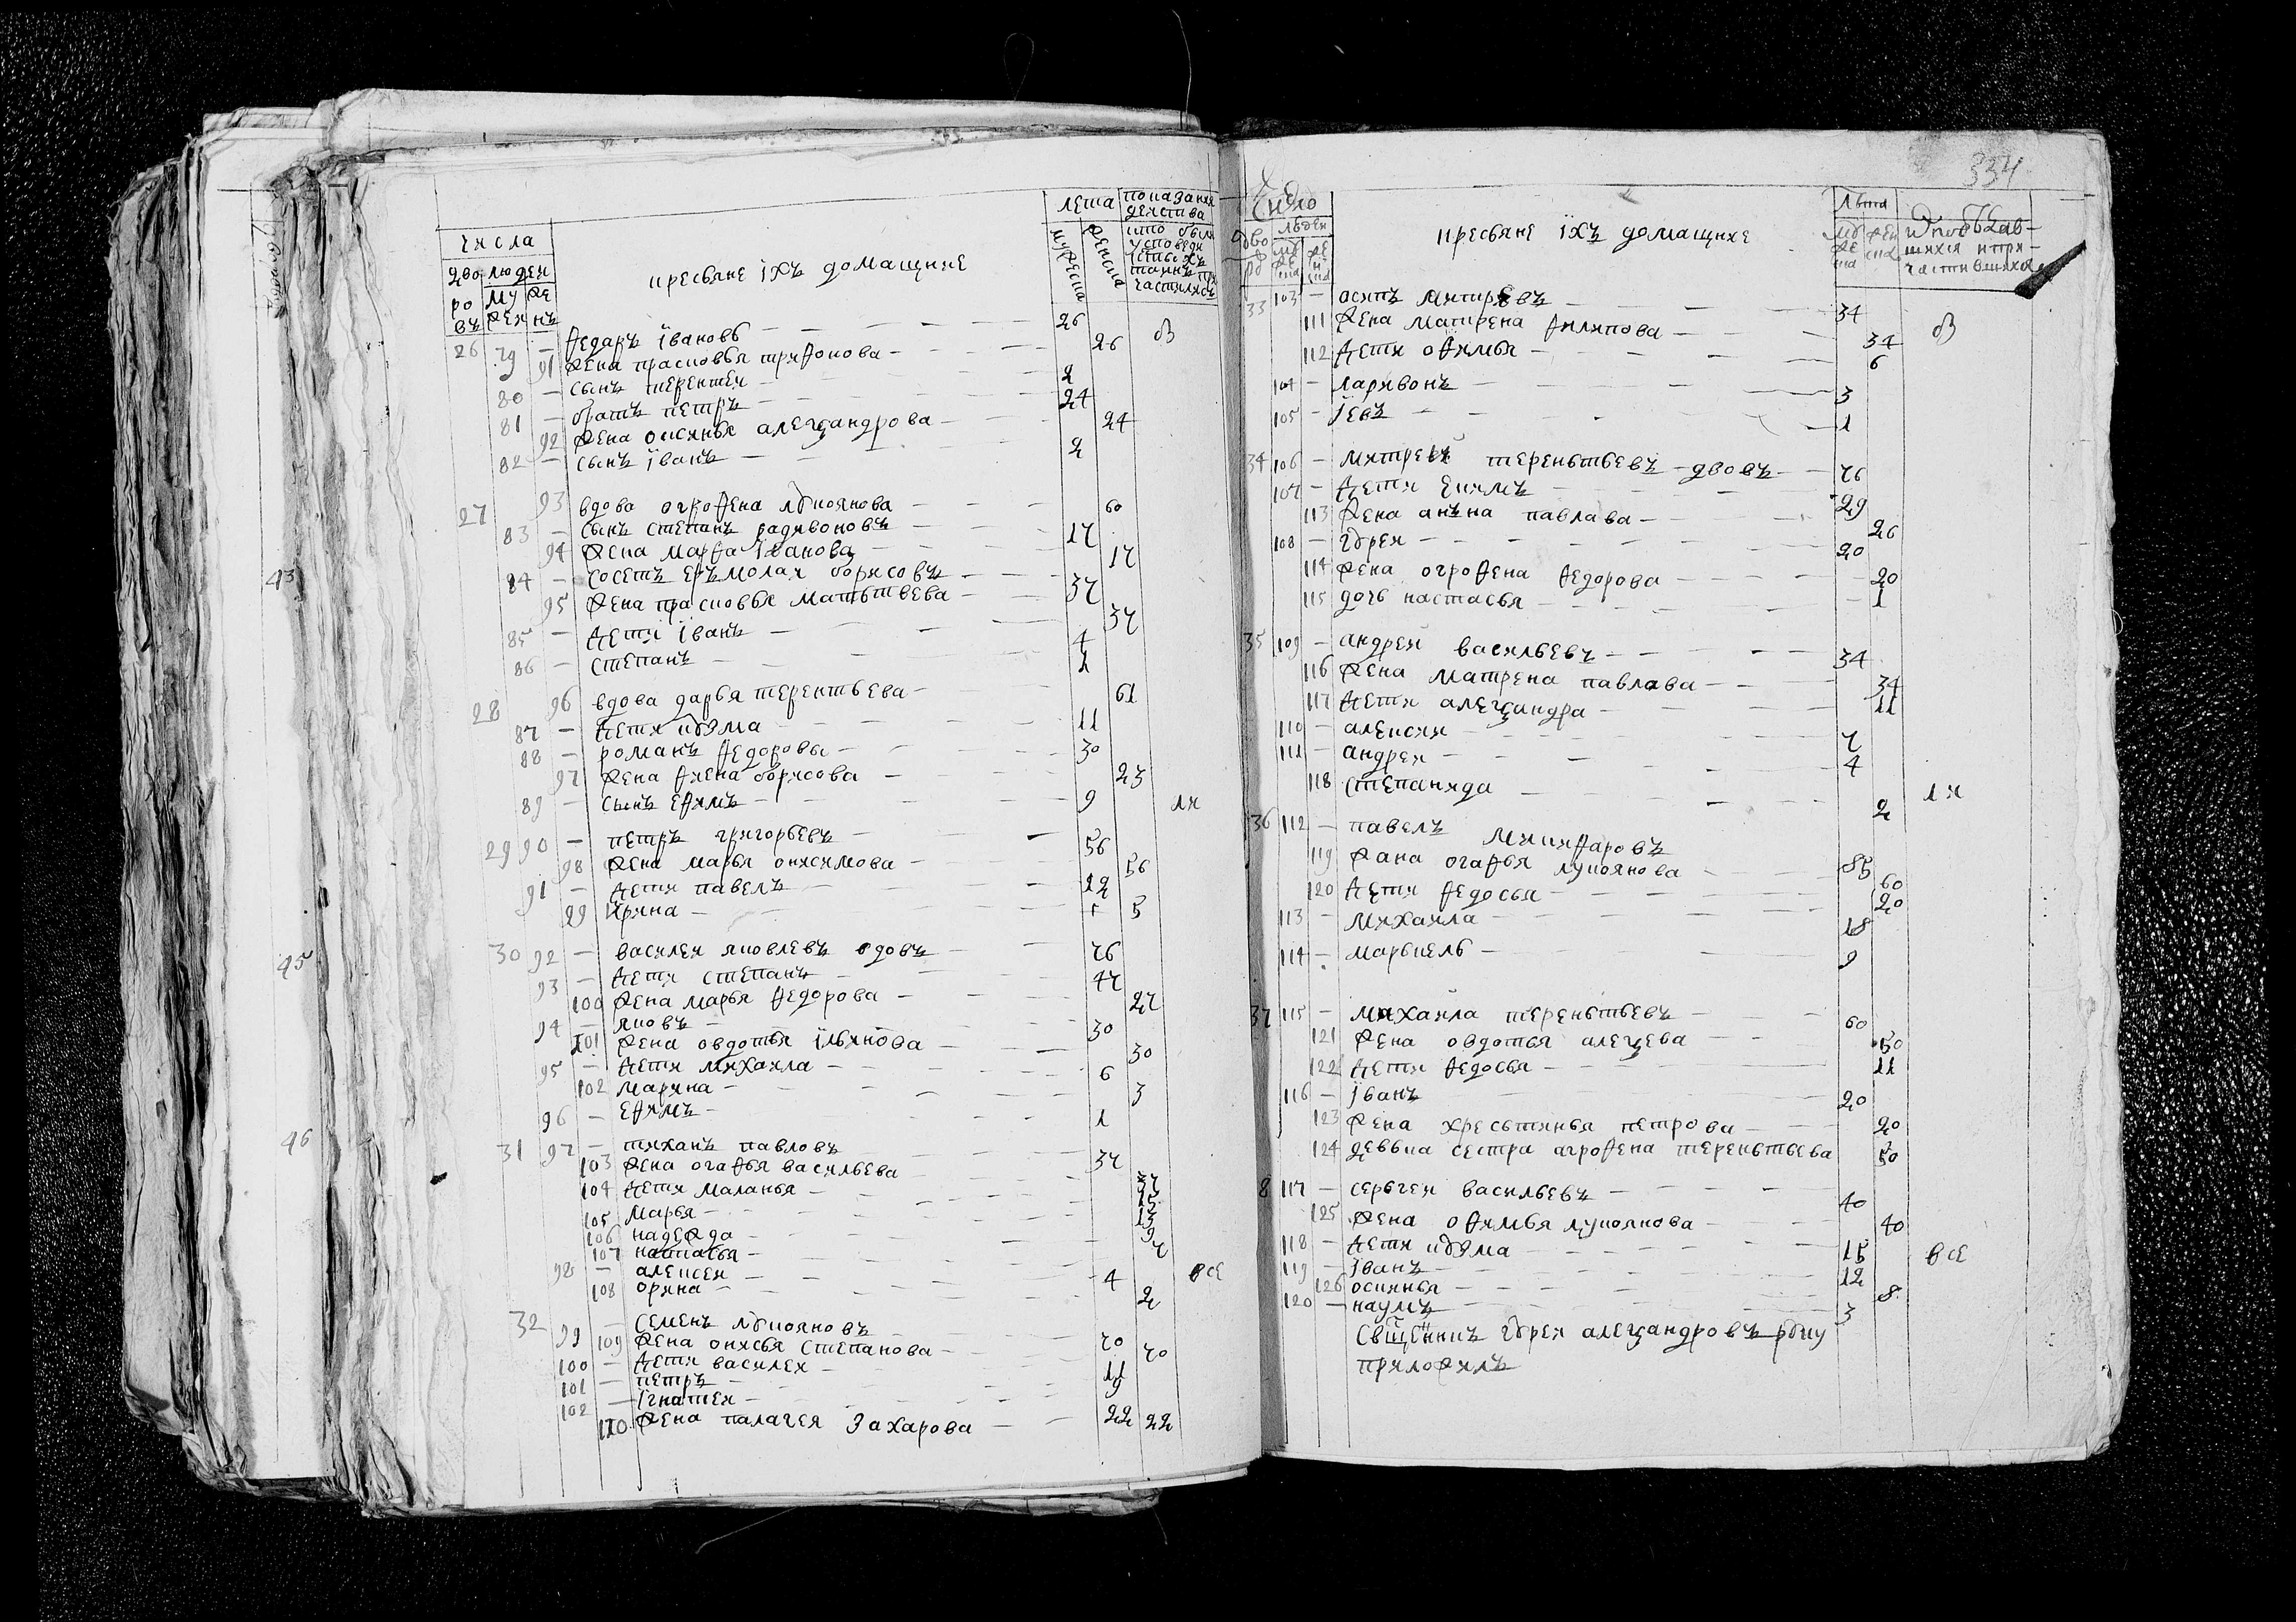 числа
дво людеи
ро му же
въ жеи нъ
кресьяне їхъ домашние
лета
мужеска
женска
показания
деиства
кто были
у споведи
и стыхъ
таинъ при
частилися
26 79 — Ѳедаръ ївановъ — 26 ов
91 жена прасковья триѳонова — 26
80 — сынъ терентеи — 2
81 — братъ петръ — 24
92 жена оксинья алеѯандрова — 24
82 — сынъ їванъ — 2
27 93 вдова огроѳена лукоянова — 60
83 — сынъ степанъ радивоновъ — 17
94 жена марѳа їванова — 17
84 — сосетъ еръмолаи борисовъ — 37
95 жена прасковья матьтвева — 37
85 — дети їванъ — 4
86 — степанъ — 1
28 96 вдова дарья терентьева — 61
87 — дети кузма — 11
88 — романъ Ѳедоровъ — 30
97 жена Ѳиена борисова — 23
89 — сынъ еѳимъ — 9 ли
29 90 — петръ григорьевъ — 56
98 жена марья онисимова — 56
91 — дети павелъ — 12
99 їрина — 5
30 92 — василеи яковлевъ вдовъ — 76
93 — дети степанъ — 47
100 жена марья Ѳедорова — 27
94 — яковъ — 30
101 жена овдотья їльинова — 30
95 — дети михаила — 6
102 марина — 3
96 — еѳимъ — 1
31 97 — тиханъ павловъ — 37
103 жена огаѳья васильева — 37
104 дети маланья — 15
105 марья — 13
106 надежда — 9
107 настасья — 7
98 — алексеи — 4 все
108 орина — 2
32 99 — семенъ лукояновъ — 70
109 жена онисья степанова — 70
100 — дети василеи — 11
101 — петръ — 9
102 — їгнатеи — 22
110 жена палагея захарова — 22
43
45
46
334
число
дво
ро
людеи
кресьяне їхъ домашние
лѣта
33 103 — осипъ митревъ — 34 ов
111 жена матрена Ѳилипова — 34
112 дети оѳимья — 6
104 — ларивонъ — 3
105 — їевъ — 1
34 106 — митреи тереньтьевъ вдовъ — 76
107 — дети екимъ — 29
113 жена анъна павлава — 26
108 — гуреи — 20
114 жена огроѳена Ѳедорова — 20
115 дочь настасья — 1
35 109 — андреи васильевъ — 34
116 жена матрена павлава — 34
117 дети алеѯандра — 11
110 — алексеи — 7
111 — андреи — 4
118 степанида — 2 ли
36 112 — павелъ микиѳаровъ — 85
119 жана огаѳья лукоянова — 60
120 дети Ѳедосья — 20
113 — михаила — 18
114 — марькель — 9
37 115 — михаила тереньтьевъ — 60
121 жена овдотья алеѯева — 50
122 дети Ѳедосья — 11
116 — їванъ — 20
123 жена хресьтинья петрова — 20
124 девька сестра агроѳена тереньтьева 50
8 117 — серьгеи васильевъ — 40
125 жена оѳимья лукоянова — 40
118 — дети кузма — 15 все
119 — їванъ — 12
126 оскинья — 8
120 — наумъ — 3
свщенникъ гуреи алеѯандровъ руку
приложилъ